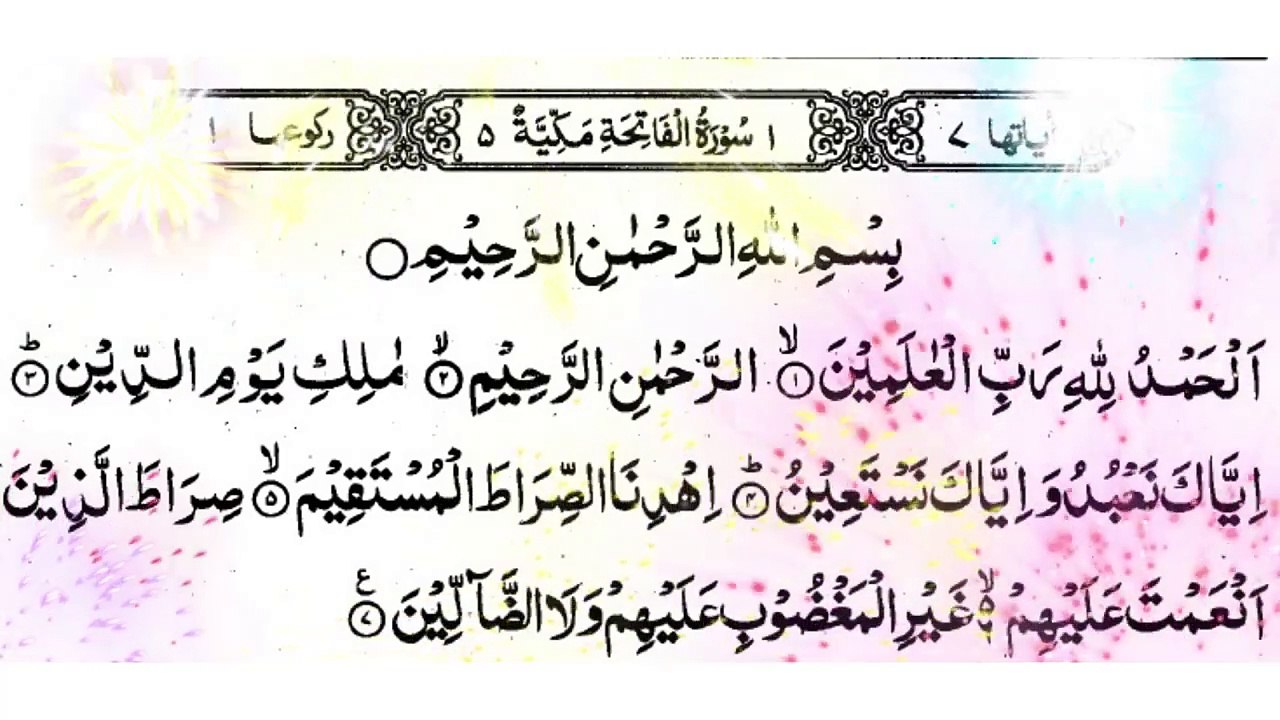 اٰياتها ٧ ١ سُوْرَةُ الْفَاتِحَةِ مَكِّيَّةٌ ٥ ركوعها ١
بِسْمِ اللّٰهِ الرَّحْمٰنِ الرَّحِيْمِ
اَلْحَمْدُ لِلّٰهِ رَبِّ الْعٰلَمِيْنَ ۙ﴿١﴾ الرَّحْمٰنِ الرَّحِيْمِ ۙ﴿٢﴾ مٰلِكِ يَوْمِ الدِّيْنِ ؕ﴿٣﴾
اِيَّاكَ نَعْبُدُ وَ اِيَّاكَ نَسْتَعِيْنُ ؕ﴿٤﴾ اِهْدِنَا الصِّرَاطَ الْمُسْتَقِيْمَ ۙ﴿٥﴾ صِرَاطَ الَّذِيْنَ
اَنْعَمْتَ عَلَيْهِمْ ۙ۬ غَيْرِ الْمَغْضُوْبِ عَلَيْهِمْ وَلَا الضَّآلِّيْنَ ﴿٧﴾ ع